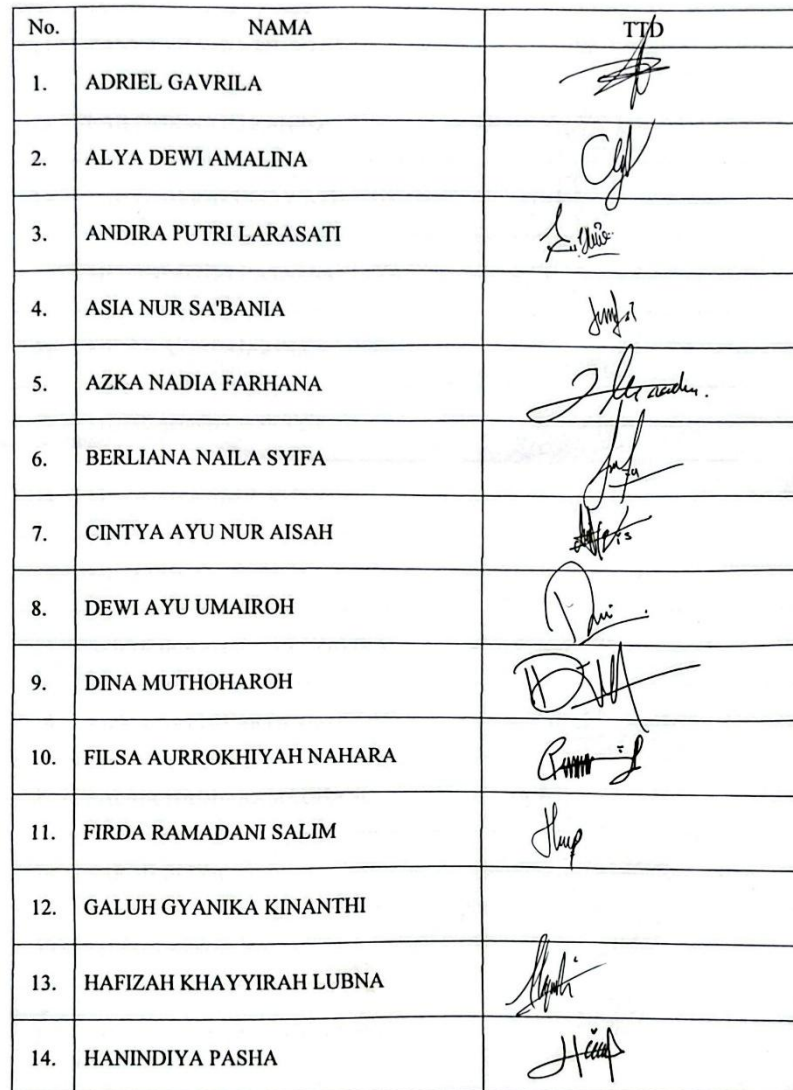 No. NAMA TTD
1. ADRIEL GAVRILA
2. ALYA DEWI AMALINA
3. ANDIRA PUTRI LARASATI
4. ASIA NUR SA'BANIA
5. AZKA NADIA FARHANA
6. BERLIANA NAILA SYIFA
7. CINTYA AYU NUR AISAH
8. DEWI AYU UMAIROH
9. DINA MUTHOHAROH
10. FILSA AURROKHIYAH NAHARA
11. FIRDA RAMADANI SALIM
12. GALUH GYANIKA KINANTHI
13. HAFIZAH KHAYYIRAH LUBNA
14. HANINDIYA PASHA